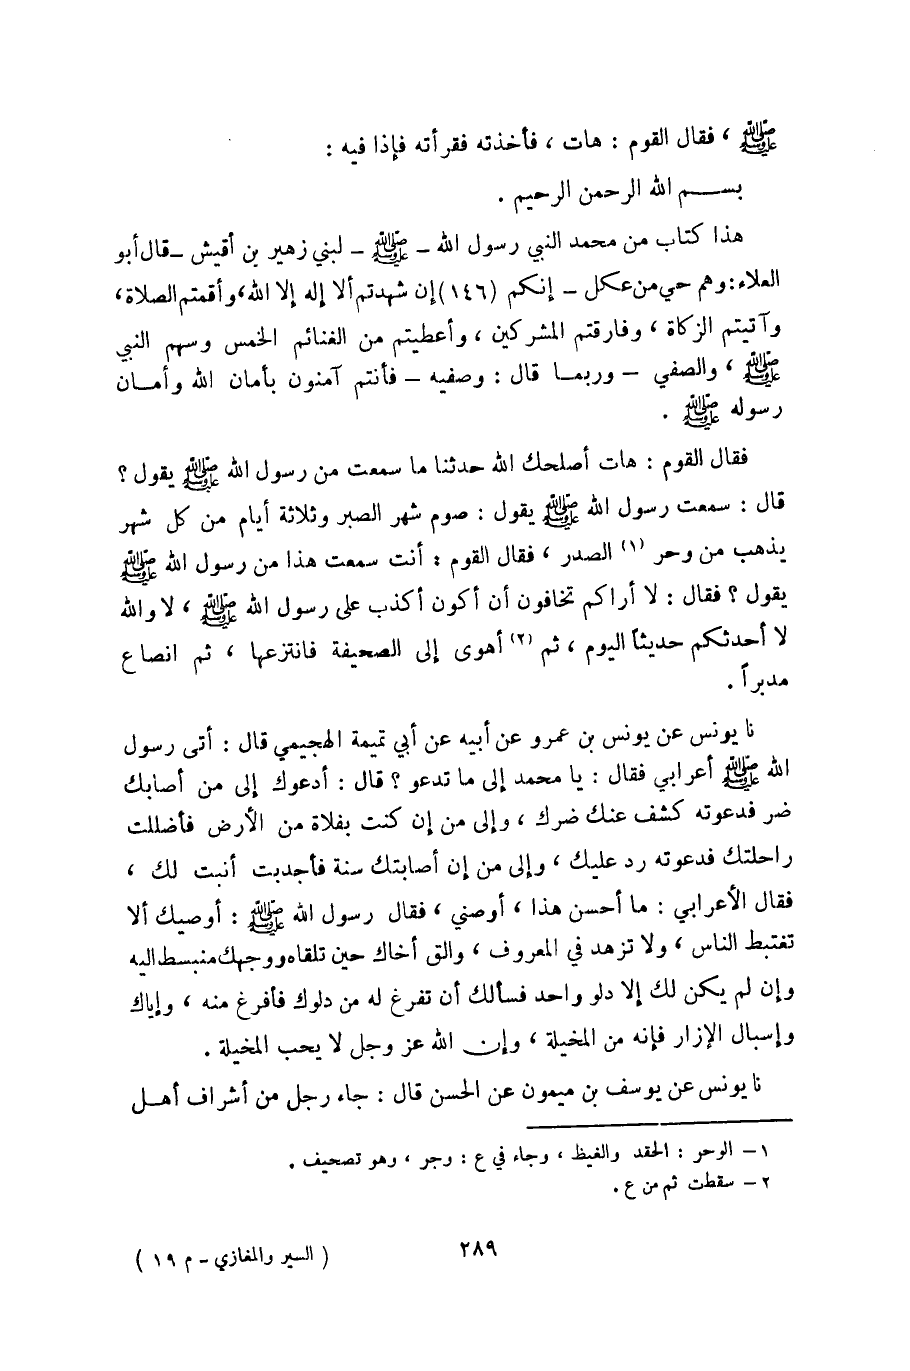 ﷺ ، فقال القوم : هات ، فأخذته فقرأته فإذا فيه :
بســم الله الرحمن الرحيم .
هذا كتاب من محمد النبي رسول الله ـ ﷺ ـ لبني زهير بن أقيش ـ قال أبو
العلاء : وهم حي من عكل ـ إنكم (١٤٦) إن شهدتم ألا إله إلا الله ، وأقمتم الصلاة ،
وآتيتم الزكاة ، وفارقتم المشركين ، وأعطيتم من الغنائم الخمس وسهم النبي
ﷺ ، والصفي ـ وربمـا قال : وصفيه ـ فأنتم آمنون بأمان الله وأمـان
رسوله ﷺ .
فقال القوم : هات أصلحك الله حدثنا ما سمعت من رسول الله ﷺ يقول ؟
قال : سمعت رسول الله ﷺ يقول : صوم شهر الصبر وثلاثة أيام من كل شهر
يذهب من وحر (١) الصدر ، فقال القوم : أنت سمعت هذا من رسول الله ﷺ
يقول ؟ فقال : لا أراكم تخافون أن أكون أكذب على رسول الله ﷺ ، لا والله
لا أحدثكم حديثاً اليوم ، ثم (٢) أهوى إلى الصحيفة فانتزعها ، ثم انصاع
مدبراً .
نا يونس عن يونس بن عمرو عن أبيه عن أبي تميمة الهجيمي قال : أتى رسول
الله ﷺ أعرابي فقال : يا محمد إلى ما تدعو ؟ قال : أدعوك إلى من أصابك
ضر فدعوته كشف عنك ضرك ، وإلى من إن كنت بفلاة من الأرض فأضللت
راحلتك فدعوته رد عليك ، وإلى من إن أصابتك سنة فأجدبت أنبت لك ،
فقال الأعرابي : ما أحسن هذا ، أوصني ، فقال رسول الله ﷺ : أوصيك ألا
تغتبط الناس ، ولا تزهد في المعروف ، والق أخاك حين تلقاه ووجهك منبسط اليه
وإن لم يكن لك إلا دلو واحد فسألك أن تفرغ له من دلوك فأفرغ منه ، وإياك
وإسبال الإزار فإنه من المخيلة ، وإن الله عز وجل لا يحب المخيلة .
نا يونس عن يوسف بن ميمون عن الحسن قال : جاء رجل من أشراف أهـل
١ ـ الوحر : الحقد والغيظ ، وجاء في ع : وجر ، وهو تصحيف .
٢ ـ سقطت ثم من ع .
٢٨٩
( السير والمغازي ـ م ١٩ )